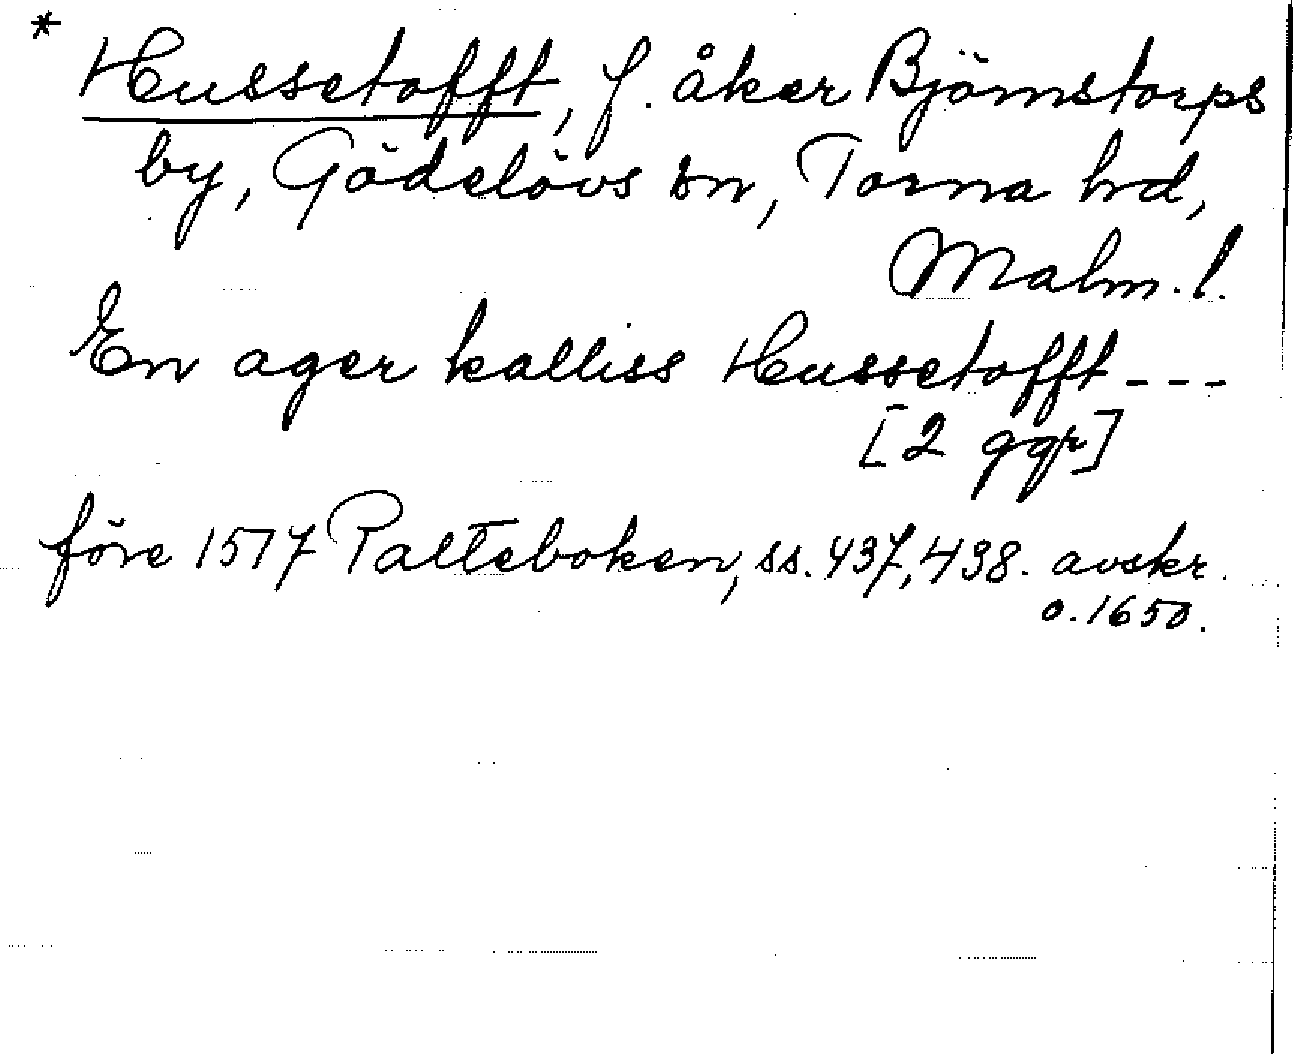 * Hussetofft, f. åker Björnstorps
by, Gödelövs sn, Torna hd,
Malm. l.
En ager kalliss Hussetofft - - -
[2 ggr]
före 1517 Palteboken, ss. 437, 438. avskr.
o. 1650.